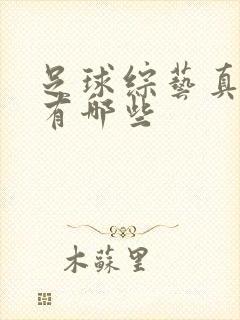 足球綜藝真
有哪些
木蘇里